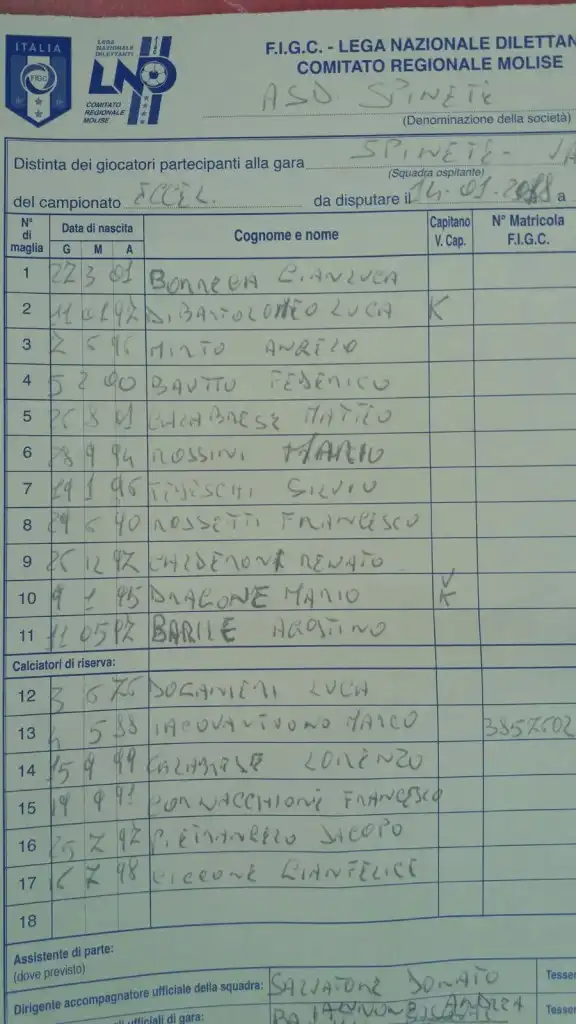 ITALIA
FIGC
LEGA NAZIONALE DILETTANTI
LND
COMITATO REGIONALE MOLISE
F.I.G.C. - LEGA NAZIONALE DILETTAN
COMITATO REGIONALE MOLISE
ASD SPINETE
(Denominazione della società)
Distinta dei giocatori partecipanti alla gara SPINETE -
(Squadra ospitante)
del campionato ECCEL. da disputare il 14-01-2018 a
N° di maglia Data di nascita G M A Cognome e nome Capitano V. Cap. N° Matricola F.I.G.C.
1 22 3 01 BORRECA GIANLUCA
2 11 92 DI BARTOLOMEO LUCA K
3 2 6 96 MINTO ANGELO
4 5 2 90 BAUTTO FEDERICO
5 26 8 01 CALABRESE MATTEO
6 28 9 94 ROSSINI MARIO
7 19 1 96 TEDESCHI SILVIO
8 29 6 90 ROSSETTI FRANCESCO
9 26 12 92 CALDERONI RENATO
10 9 1 95 DRAGONE MARIO V K
11 11 05 92 BARILE AGOSTINO
Calciatori di riserva:
12 3 6 76 DOGANIERI LUCA
13 5 88 IACOVANTUONO MARCO 3857602
14 15 9 99 CALABRESE LORENZO
15 19 9 91 CORNACCHIONE FRANCESCO
16 25 7 92 PIETRANGELO JACOPO
17 16 7 98 CICCONE GIANFELICE
18
Assistente di parte:
(dove previsto)
Dirigente accompagnatore ufficiale della squadra: SALVATORE DONATO Tesser
ufficiali di gara: ANDREA Tesser